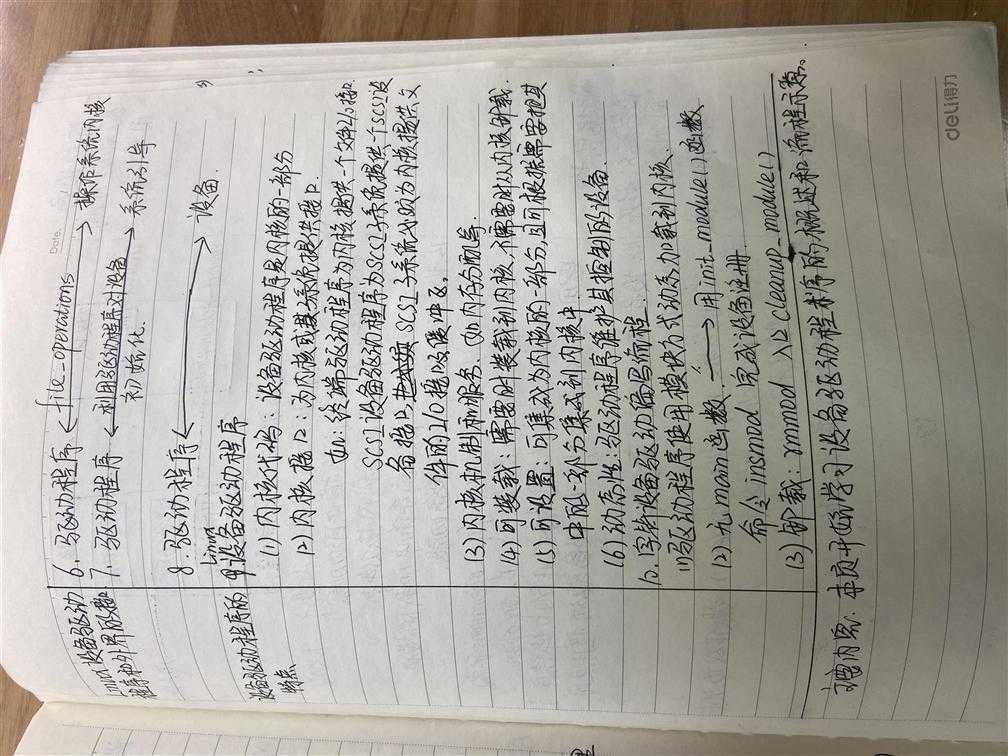 Date.
linux设备驱动
程序和外界的接
6. 驱动程序 ← file_operations → 操作系统内核
7. 驱动程序 ← 利用驱动程序对设备 → 系统引导
初始化.
8. 驱动程序 ← → 设备.
设备驱动程序的
特点
linux
9设备驱动程序
(1) 内核代码: 设备驱动程序是内核的一部分
(2) 内核接口: 为内核或其子系统提供接口.
如: 终端驱动程序为内核提供一个文件I/O接口.
SCSI设备驱动程序为SCSI子系统提供一个SCSI设
备接口, SCSI子系统也为内核提供文
件的I/O接口及缓冲区.
(3) 内核机制和服务. 如内存分配等
(4) 可装载: 需要时装载到内核, 不需要时从内核卸载.
(5) 可设置: 可集成为内核的一部分, 且可根据需要把其
中的一部分集成到内核中
(6) 动态性: 驱动程序维护其控制的设备.
10. 字符设备驱动编写流程
(1) 驱动程序使用模块方式动态加载到内核.
(2) 无main函数. → 用init_module()函数
命令insmod 完成设备注册
(3) 卸载: rmmod 入口cleanup_module()
主要内容: 本页中断学习设备驱动程序的概述和流程示意。
deli得力